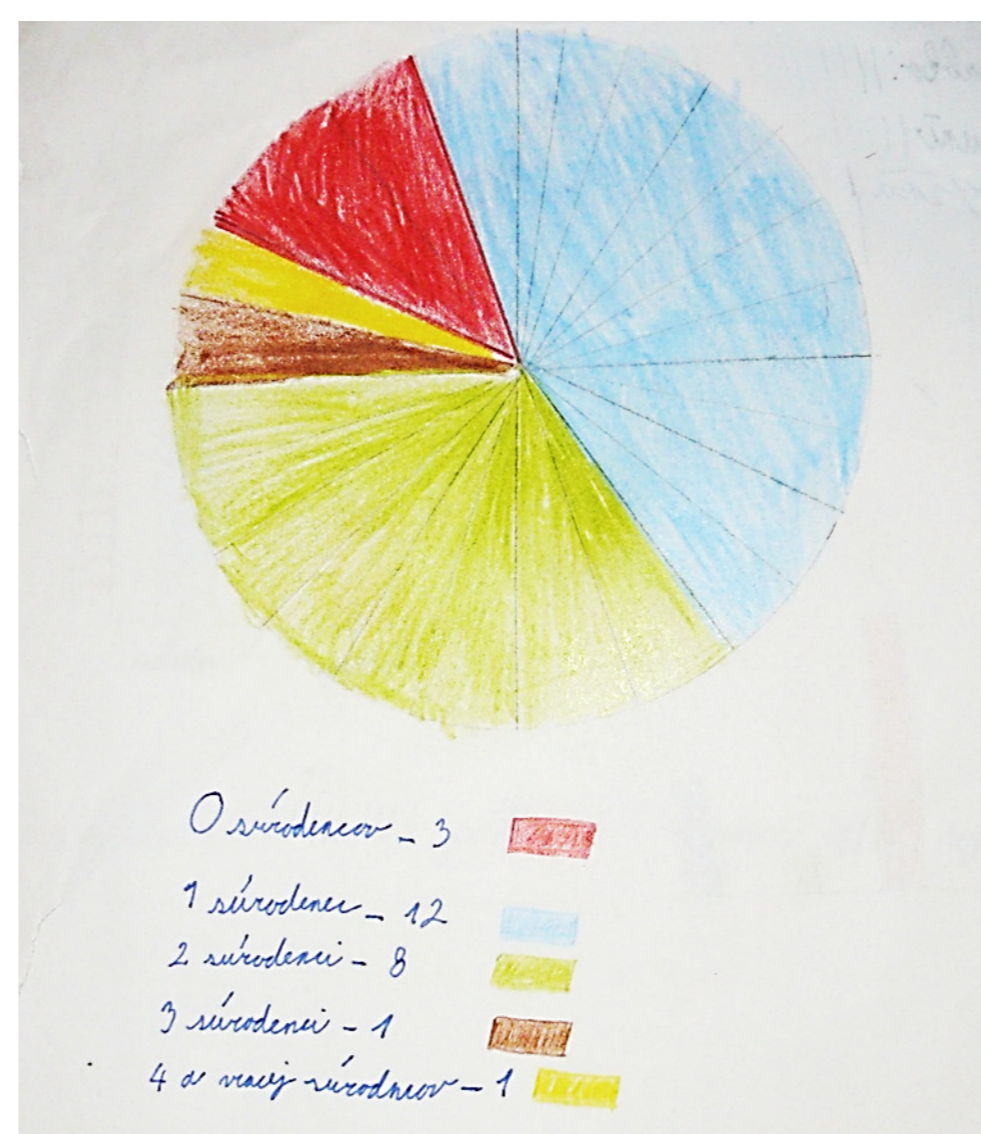 0 súrodencov - 3
1 súrodenec - 12
2 súrodenci - 8
3 súrodenci - 1
4 a viacej súrodncov - 1